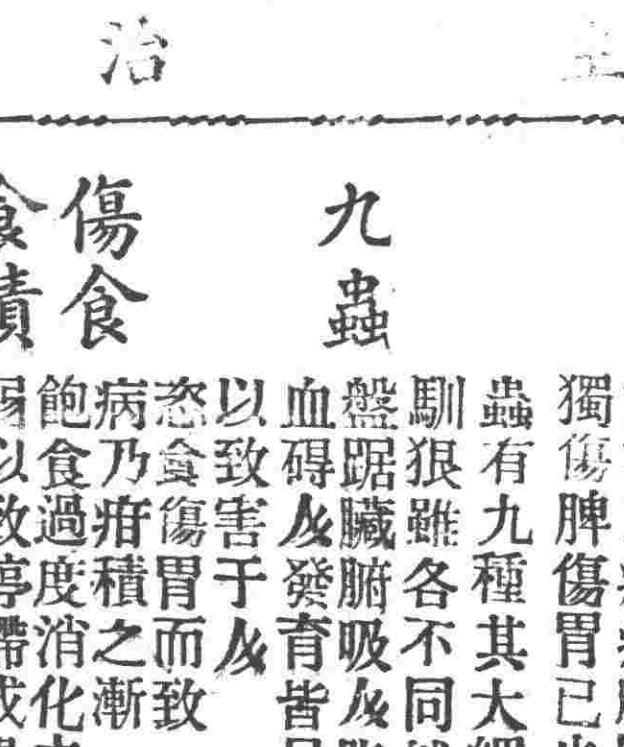 主治
獨傷脾傷胃已
九蟲
蟲有九種其大
馴狠雖各不同
盤踞臟腑吸人
血碍人發育皆
以致害于人
傷食
恣食傷胃而致
病乃疳積之漸
飽食過度消化
食積
弱以致停滯或